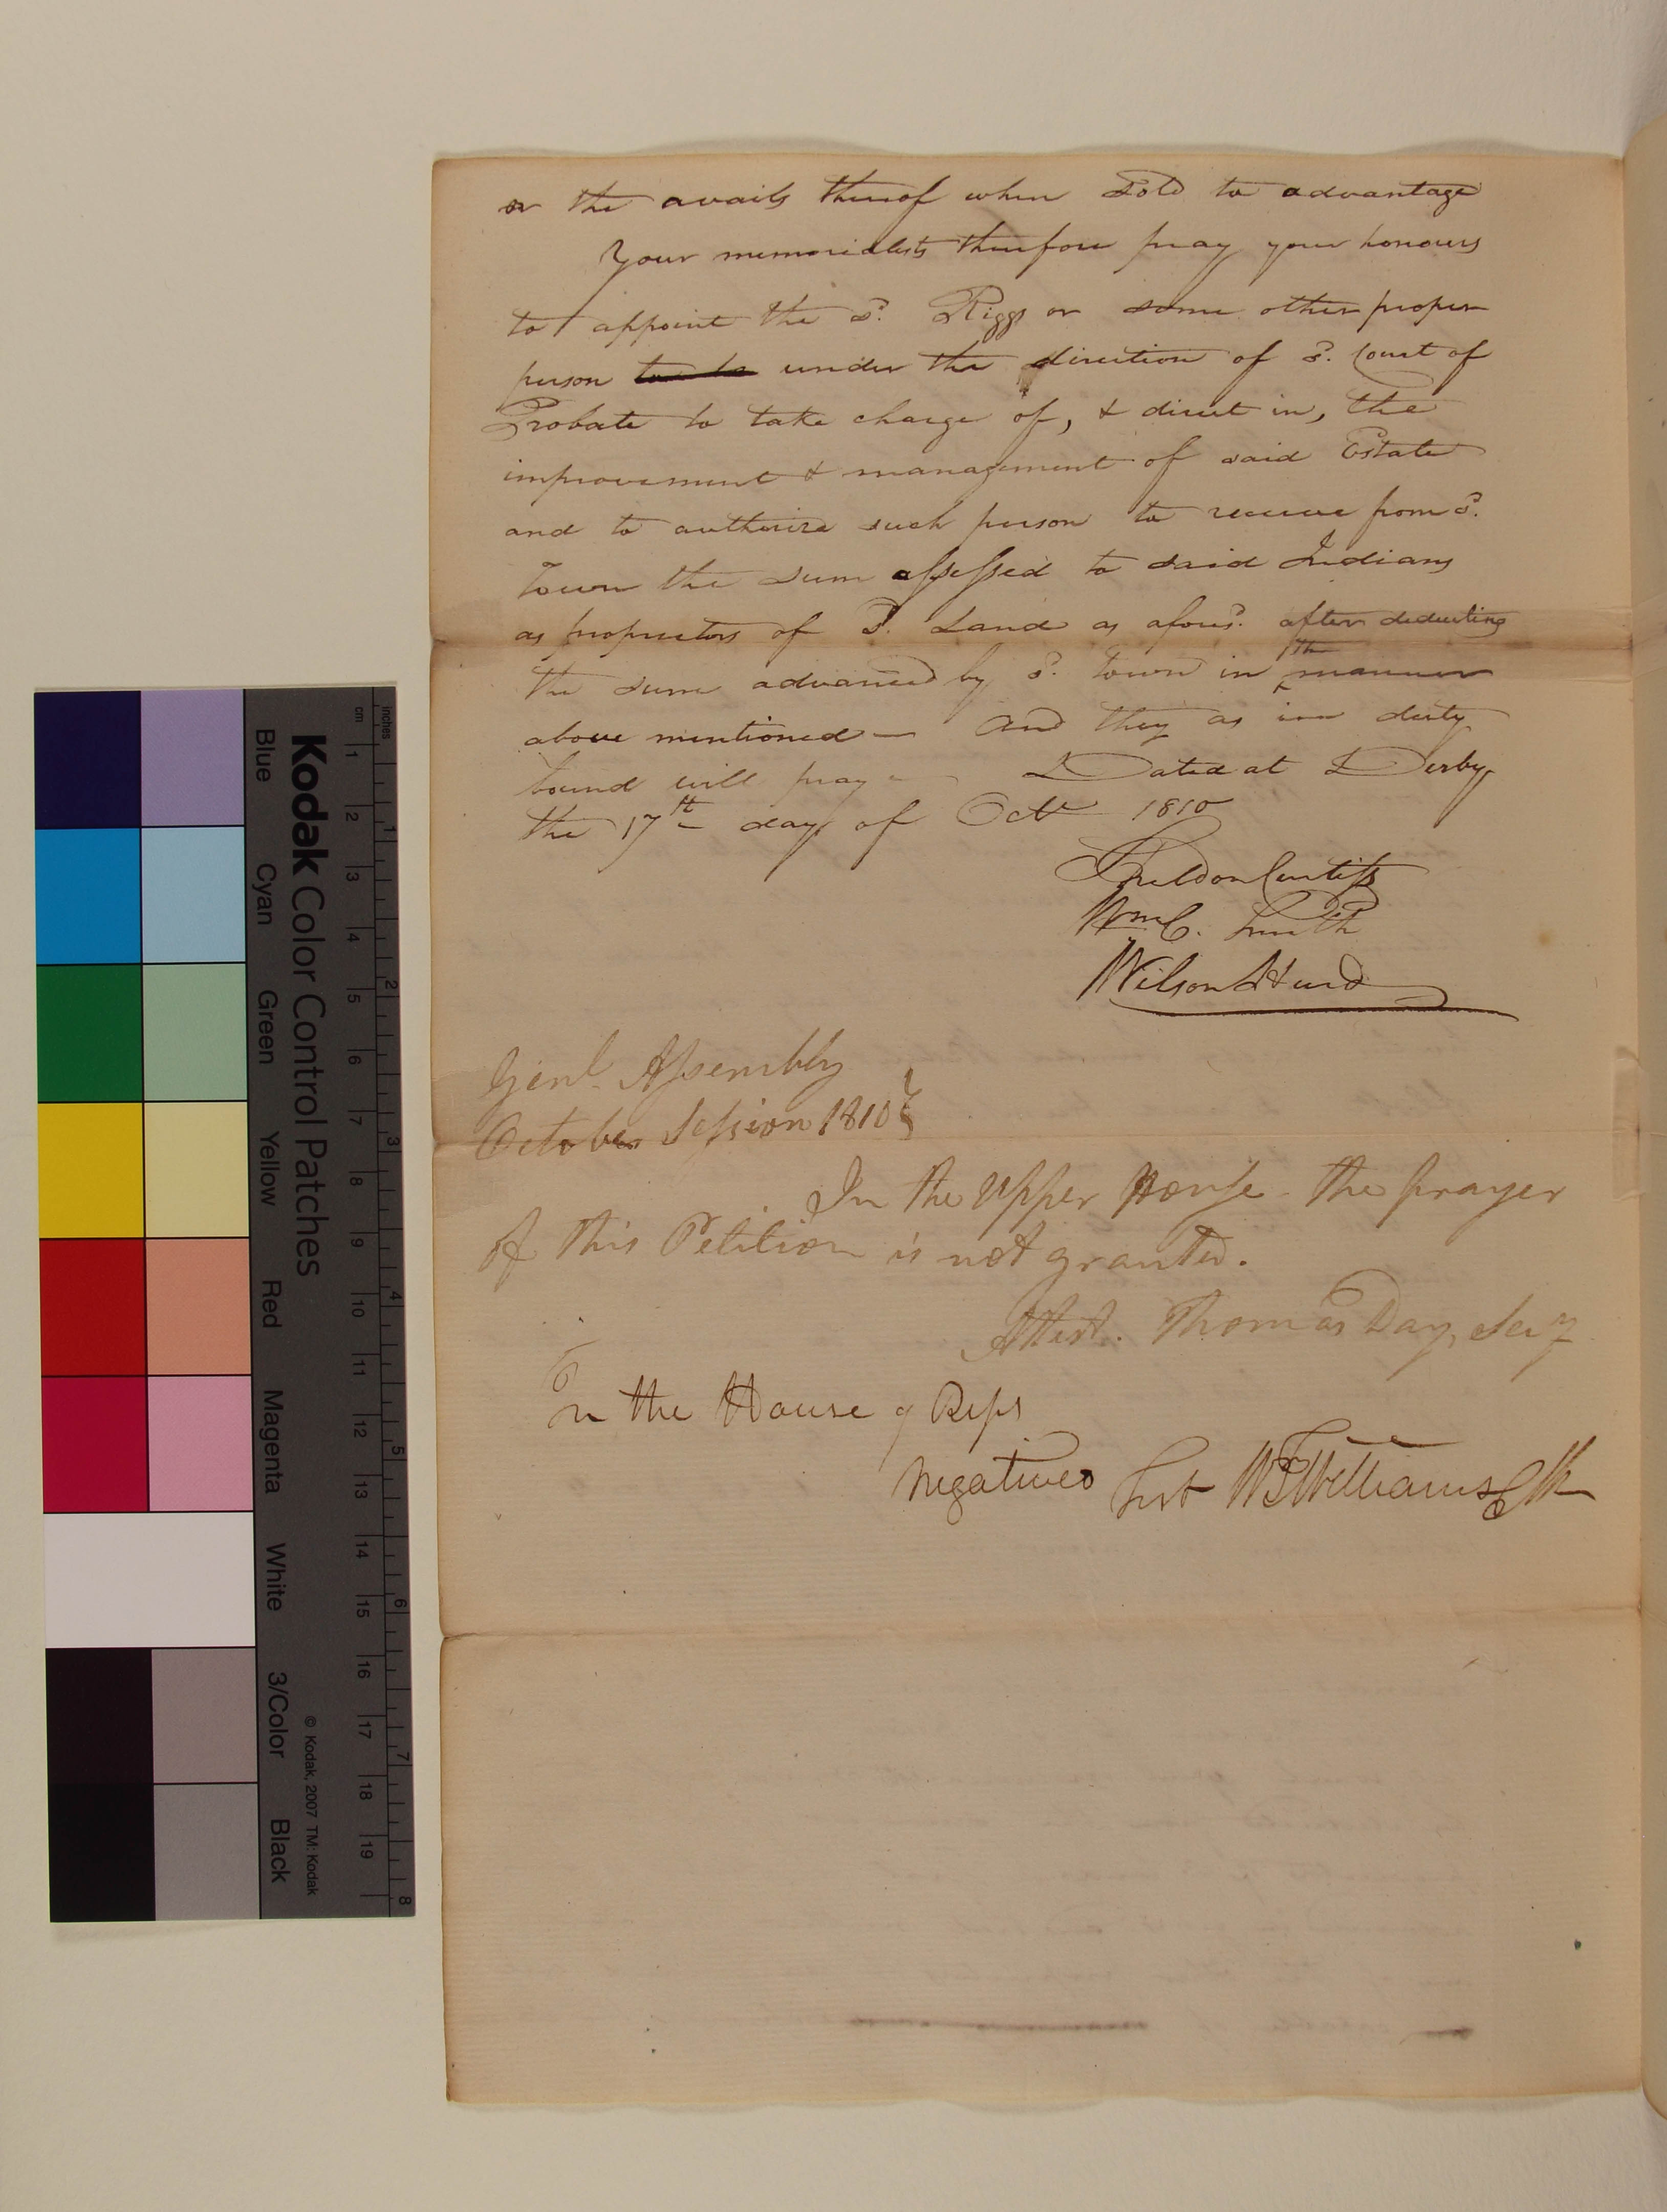 or the avails thereof when Sold to advantage
Your memorialists therefore pray your honours
to appoint the sd. Riggs or some other proper
person to be under the direction of sd. Court of
Probate to take charge of, & direct in, the
improvement & management of said Estate
and to authorize such person to receive from sd.
Town the sum assessed to said Indians
as proprietors of sd. Land as aforesd. after deducting
the sum advanced by sd. Town in the manner
above mentioned — And they as in duty
bound will pray — Dated at Derby
the 17th day of Octr 1810
Sheldon Curtiss
Wm C. Smith
Wilson Hurd
Genl. Assembly
October Session 1810
In the Upper House - the prayer
of this Petition is not granted.
Attest. Thomas Day, Secy
In the House of Reps
Negatived Test W Williams Clk
Kodak Color Control Patches
Blue
Cyan
Green
Yellow
Red
Magenta
White
3/Color
Black
© Kodak, 2007 TM: Kodak
inches
1
2
3
4
5
6
7
8
cm
1
2
3
4
5
6
7
8
9
10
11
12
13
14
15
16
17
18
19